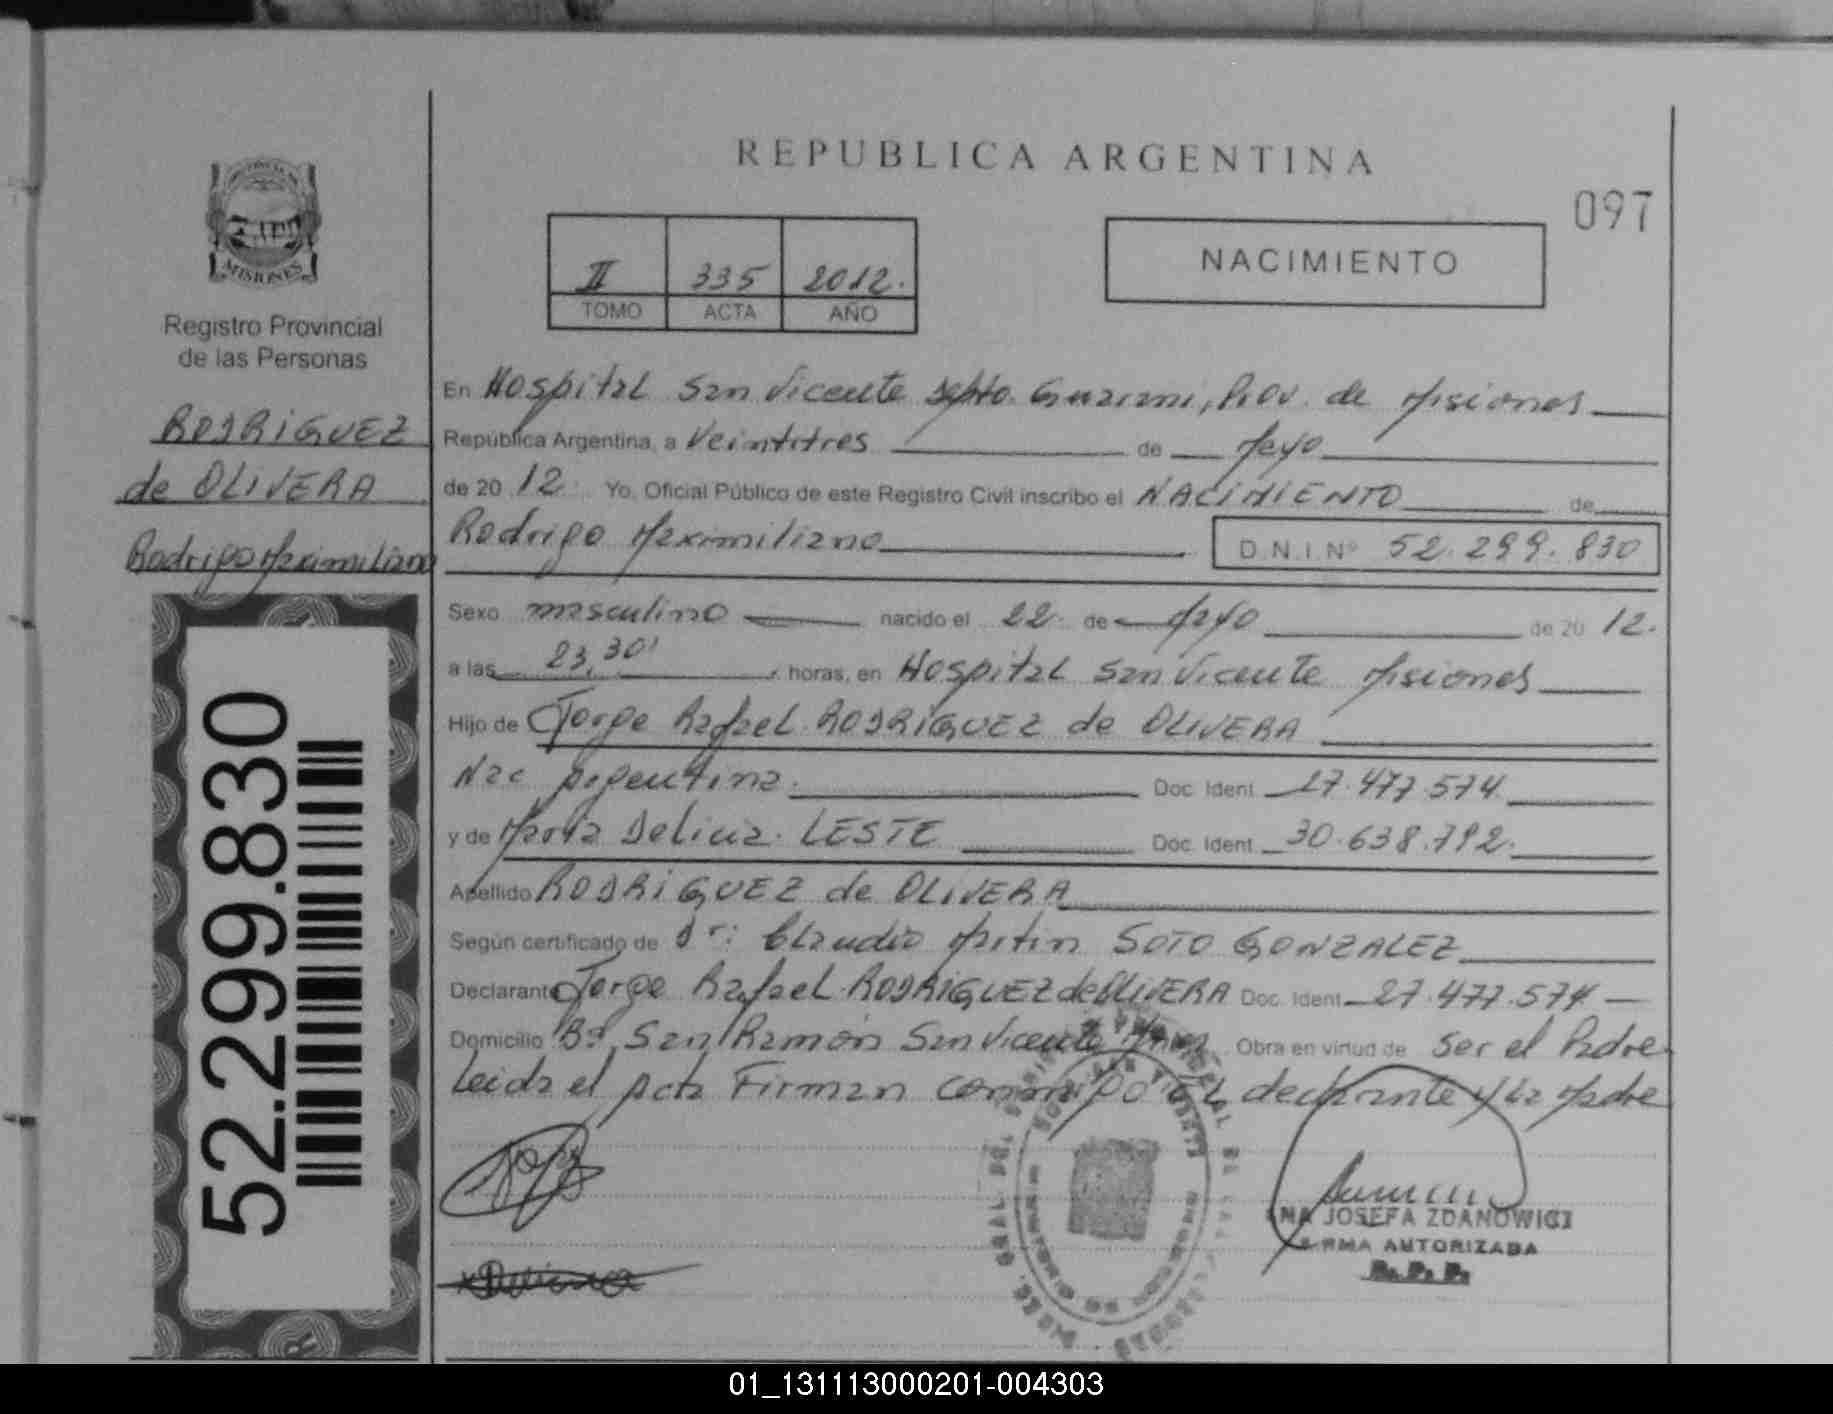 REPUBLICA ARGENTINA
097
II 335 2012.
TOMO ACTA AÑO
NACIMIENTO
MISIONES
Registro Provincial
de las Personas
RODRiGUEZ
de OLiVERA
Rodrigo Maximiliano
52.299.830
En Hospital San Vicente Depto. Guarani, Prov. de Misiones
República Argentina, a Veintitres de Mayo
de 20 12. Yo, Oficial Público de este Registro Civil inscribo el NACiMiENTO de
Rodrigo Maximiliano D.N.I. Nº 52.299.830
Sexo masculino nacido el 22 de Mayo de 20 12.
a las 23,30' horas, en Hospital San Vicente Misiones
Hijo de Jorge Rafael RODRiGUEZ de OLiVERA
Nac Argentina. Doc. Ident. 27.477.574
y de Maria Delicia LESTE Doc. Ident. 30.638.792.
Apellido RODRiGUEZ de OLiVERA
Según certificado de Dr: Claudio Martin SOTO GONZALEZ
Declarante Jorge Rafael RODRiGUEZ de OLiVERA Doc. Ident. 27.477.574.
Domicilio Bº San Ramón San Vicente Mnes Obra en virtud de ser el Padre
Leida el Acta Firman conmigo el declarante y la Madre
NA JOSEFA ZDANOWICZ
FIRMA AUTORIZADA
R. P. P.
01_131113000201-004303